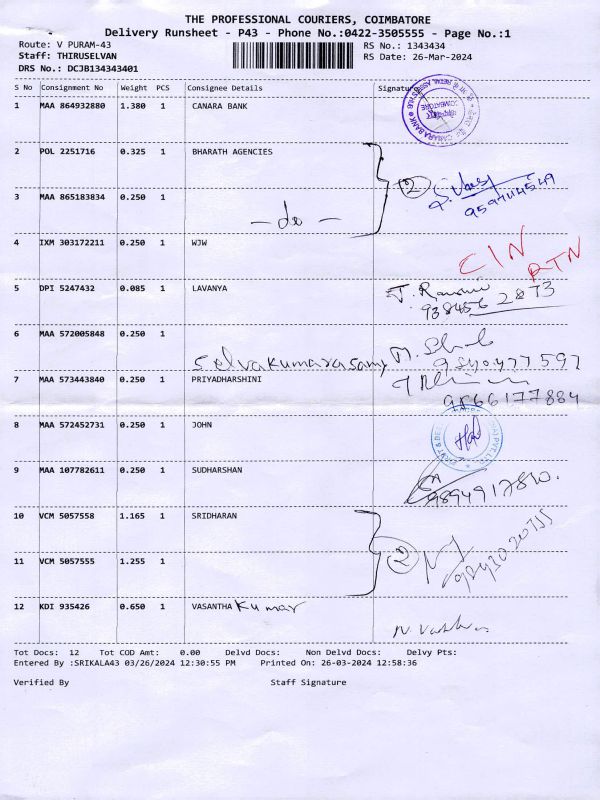 THE PROFESSIONAL COURIERS, COIMBATORE
Delivery Runsheet - P43 - Phone No.:0422-3505555 - Page No.:1
Route: V PURAM-43 RS No.: 1343434
Staff: THIRUSELVAN RS Date: 26-Mar-2024
DRS No.: DCJB134343401
S No Consignment No Weight PCS Consignee Details Signature
1 MAA 864932880 1.380 1 CANARA BANK
CANARA BANK
COIMBATORE
2 POL 2251716 0.325 1 BHARATH AGENCIES
2
3 MAA 865183834 0.250 1
- do -
4 IXM 303172211 0.250 1 WJW
RTN
5 DPI 5247432 0.085 1 LAVANYA
2873
6 MAA 572005848 0.250 1
Selvakumarasamy
7 MAA 573443840 0.250 1 PRIYADHARSHINI
8 MAA 572452731 0.250 1 JOHN
9 MAA 107782611 0.250 1 SUDHARSHAN
10 VCM 5057558 1.165 1 SRIDHARAN
2
11 VCM 5057555 1.255 1
12 KDI 935426 0.650 1 VASANTHA Kumar
Tot Docs: 12 Tot COD Amt: 0.00 Delvd Docs: Non Delvd Docs: Delvy Pts:
Entered By :SRIKALA43 03/26/2024 12:30:55 PM Printed On: 26-03-2024 12:58:36
Verified By Staff Signature